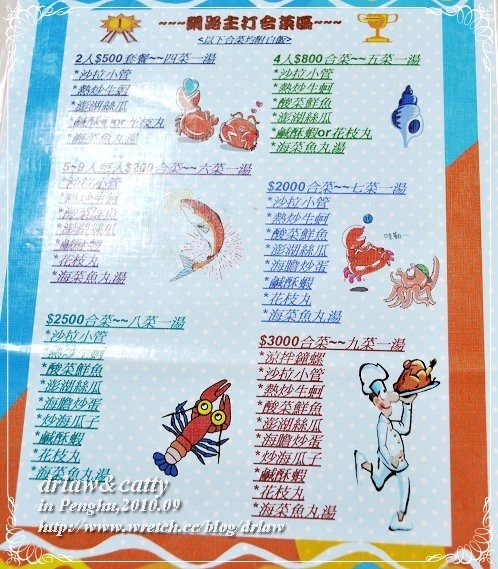 1
~~~網路主打合菜區~~~
<以下合菜均附白飯>
2人$500套餐~~四菜一湯
*沙拉小管
*熱炒牛蚵
*澎湖絲瓜
*鹹酥蝦or花枝丸
*海菜魚丸湯
4人$800合菜~~五菜一湯
*沙拉小管
*熱炒牛蚵
*酸菜鮮魚
*澎湖絲瓜
*鹹酥蝦or花枝丸
*海菜魚丸湯
合菜~~六菜一湯
*沙拉小管
*熱炒牛蚵
*酸菜鮮魚
*澎湖絲瓜
*鹹酥蝦
*花枝丸
*海菜魚丸湯
$2000合菜~~七菜一湯
*沙拉小管
*熱炒牛蚵
*酸菜鮮魚
*澎湖絲瓜
*海膽炒蛋
*鹹酥蝦
*花枝丸
*海菜魚丸湯
$2500合菜~~八菜一湯
*沙拉小管
*熱炒牛蚵
*酸菜鮮魚
*澎湖絲瓜
*海膽炒蛋
*炒海瓜子
*鹹酥蝦
*花枝丸
*海菜魚丸湯
$3000合菜~~九菜一湯
*涼拌鐘螺
*沙拉小管
*熱炒牛蚵
*酸菜鮮魚
*澎湖絲瓜
*海膽炒蛋
*炒海瓜子
*鹹酥蝦
*花枝丸
*海菜魚丸湯
drlaw&catty
in Penghu,2010.09
http://www.wretch.cc/blog/drlaw